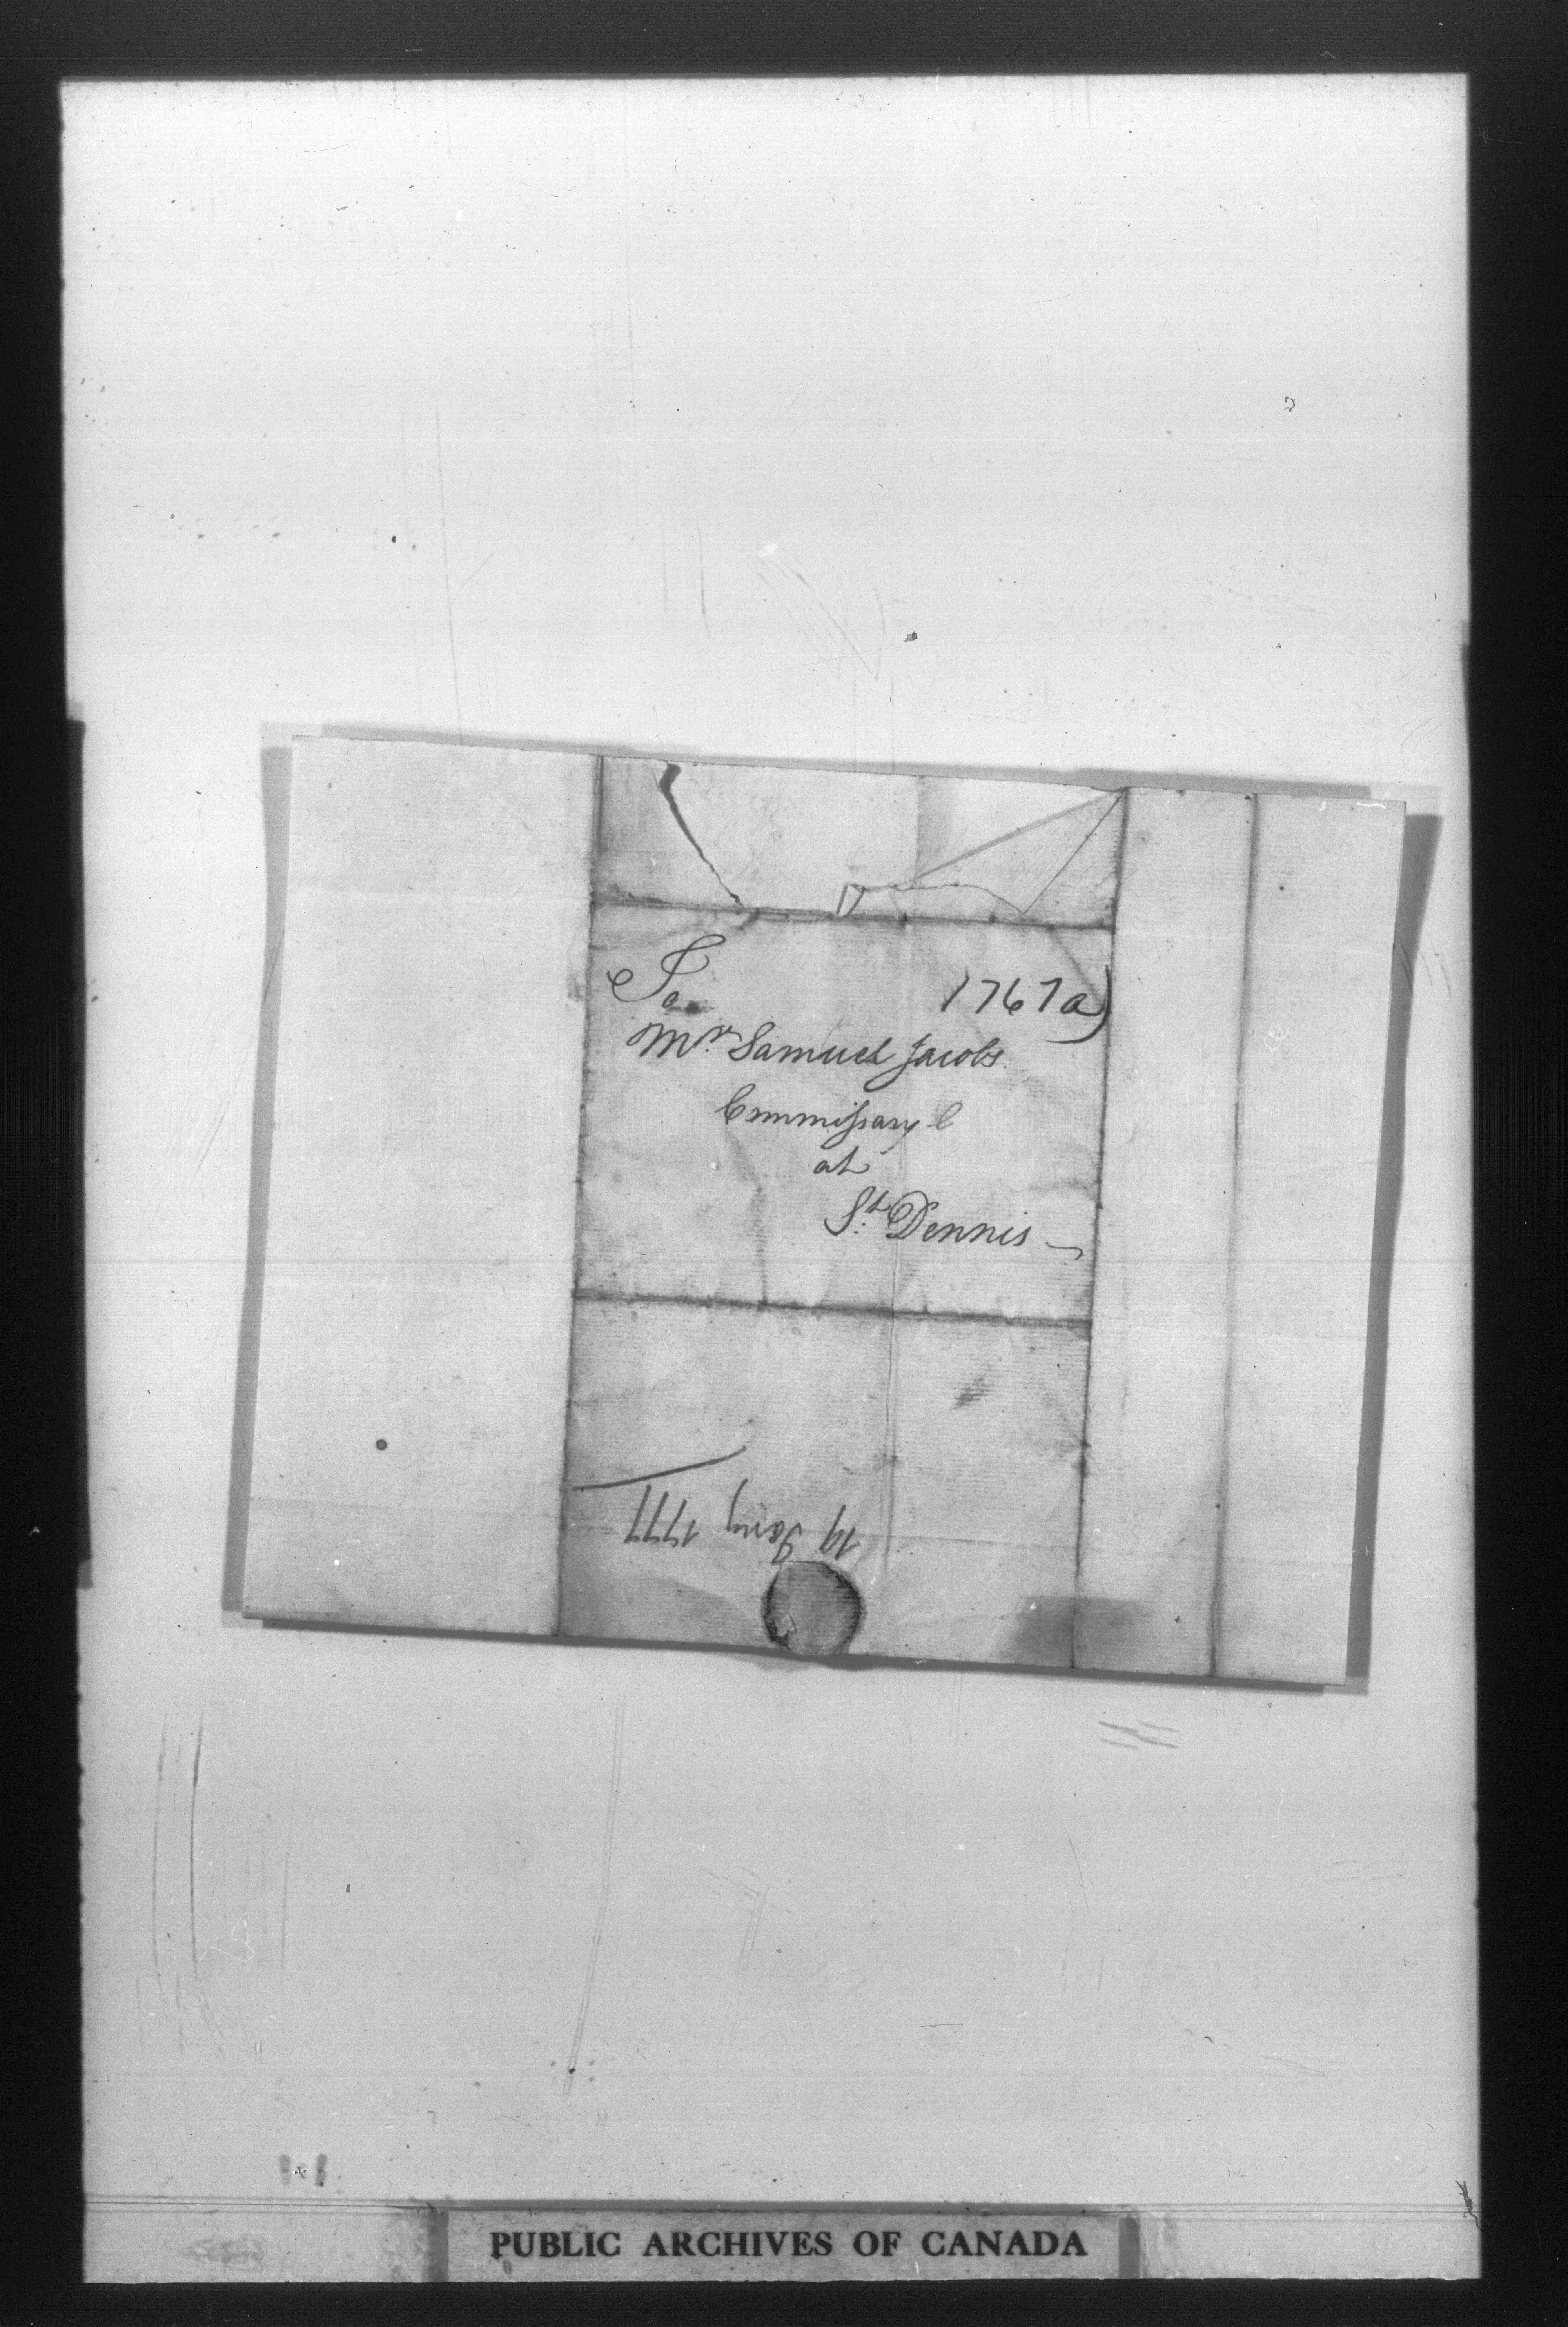 To
1767a)
Mr. Samuel Jacobs.
Commissary C
at
St. Dennis
19 Jany 1777
PUBLIC ARCHIVES OF CANADA